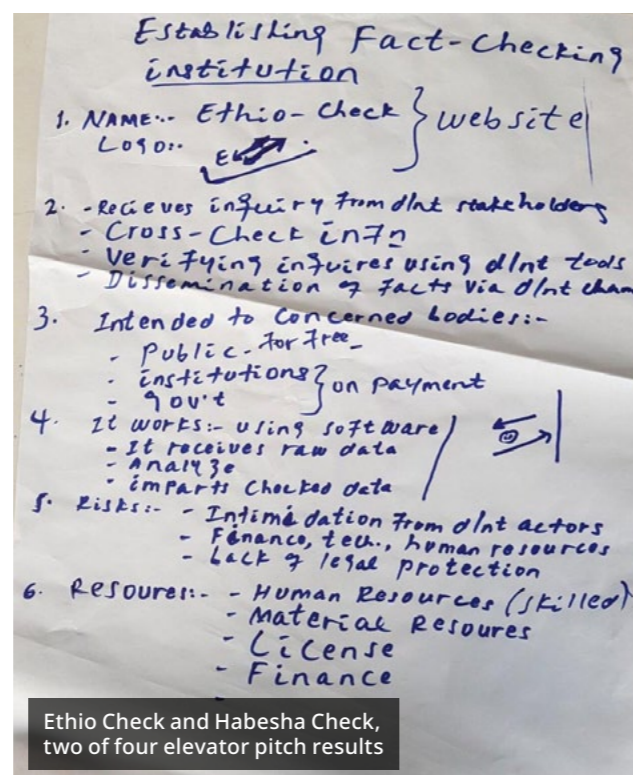 Establishing Fact-Checking
institution
1. NAME:- Ethio-Check } website
Logo:-
2. - Recieves inquiry from d/nt stakeholders
- Cross-Check infn
- Verifying inquires using d/nt tools
- Dissemination of facts via d/nt chan
3. Intended to Concerned bodies:-
- Public - for free
- institutions } on payment
- gov't
4. It works:- using software
- It receives raw data
- Analyze
- imparts checked data
5. Risks:- - Intimidation from d/nt actors
- Finance, tech., human resources
- Lack of legal protection
6. Resoures:- - Human Resources (skilled)
- Material Resoures
- License
- Finance
Ethio Check and Habesha Check,
two of four elevator pitch results